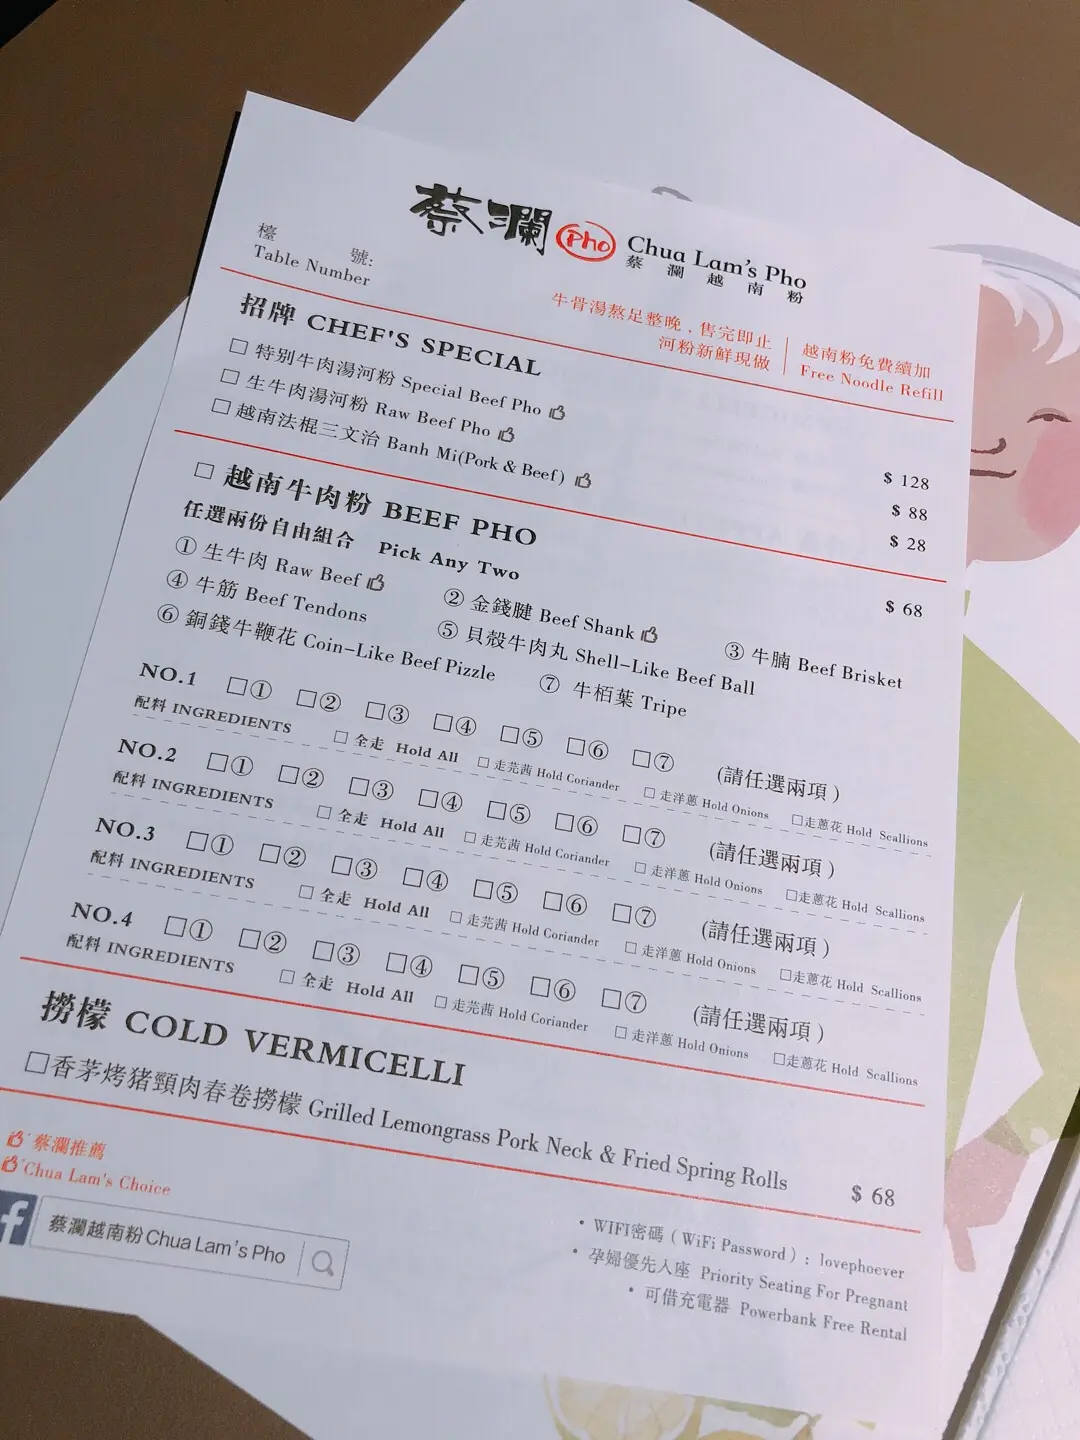 蔡瀾 Pho Chua Lam's Pho
蔡瀾越南粉
檯號:
Table Number
牛骨湯熬足整晚,售完即止
河粉新鮮現做
越南粉免費續加
Free Noodle Refill
招牌 CHEF'S SPECIAL
□ 特別牛肉湯河粉 Special Beef Pho $ 128
□ 生牛肉湯河粉 Raw Beef Pho $ 88
□ 越南法棍三文治 Banh Mi(Pork & Beef) $ 28
□ 越南牛肉粉 BEEF PHO $ 68
任選兩份自由組合 Pick Any Two
① 生牛肉 Raw Beef ② 金錢腱 Beef Shank ③ 牛腩 Beef Brisket
④ 牛筋 Beef Tendons ⑤ 貝殼牛肉丸 Shell-Like Beef Ball
⑥ 銅錢牛鞭花 Coin-Like Beef Pizzle ⑦ 牛栢葉 Tripe
NO.1 □① □② □③ □④ □⑤ □⑥ □⑦ (請任選兩項)
配料 INGREDIENTS □ 全走 Hold All □ 走芫茜 Hold Coriander □ 走洋蔥 Hold Onions □走蔥花 Hold Scallions
NO.2 □① □② □③ □④ □⑤ □⑥ □⑦ (請任選兩項)
配料 INGREDIENTS □ 全走 Hold All □ 走芫茜 Hold Coriander □ 走洋蔥 Hold Onions □走蔥花 Hold Scallions
NO.3 □① □② □③ □④ □⑤ □⑥ □⑦ (請任選兩項)
配料 INGREDIENTS □ 全走 Hold All □ 走芫茜 Hold Coriander □ 走洋蔥 Hold Onions □走蔥花 Hold Scallions
NO.4 □① □② □③ □④ □⑤ □⑥ □⑦ (請任選兩項)
配料 INGREDIENTS □ 全走 Hold All □ 走芫茜 Hold Coriander □ 走洋蔥 Hold Onions □走蔥花 Hold Scallions
撈檬 COLD VERMICELLI
□香茅烤猪頸肉春卷撈檬 Grilled Lemongrass Pork Neck & Fried Spring Rolls $ 68
蔡瀾推薦
Chua Lam's Choice
f 蔡瀾越南粉 Chua Lam's Pho
• WIFI密碼 ( WiFi Password ) : lovephoever
• 孕婦優先入座 Priority Seating For Pregnant
• 可借充電器 Powerbank Free Rental